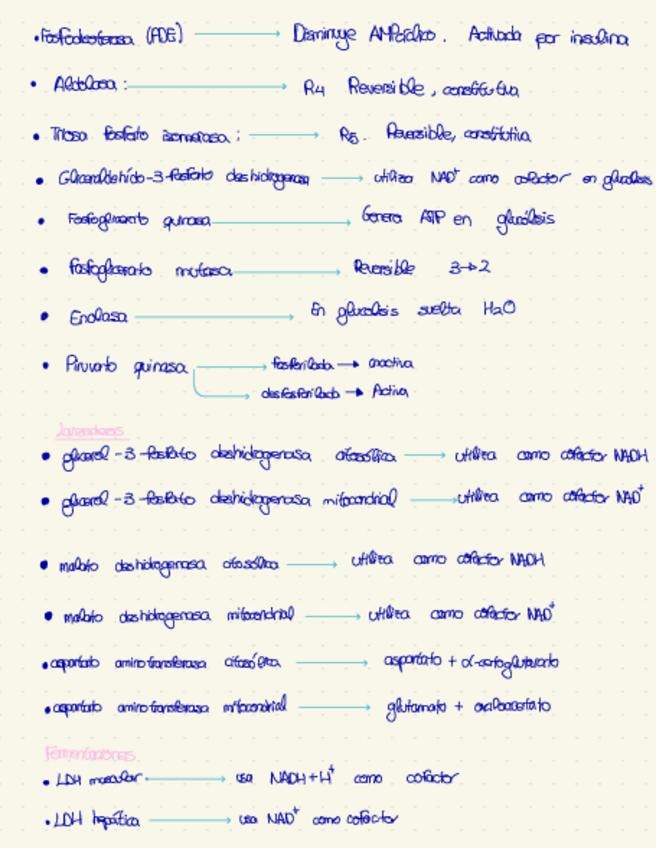 • Fosfodiesterasa (PDE) → Disminuye AMPcíclico. Activada por insulina
• Aldolasa: → R4 Reversible, constitutiva
• Triosa fosfato isomerasa: → R5. Reversible, constitutiva
• Gliceraldehído-3-fosfato deshidrogenasa → utiliza NAD⁺ como cofactor en glucólisis
• Fosfoglicerato quinasa → Genera ATP en glucólisis
• Fosfoglicerato mutasa → Reversible 3→2
• Enolasa → En glucólisis suelta H₂O
• Piruvato quinasa → fosforilada → inactiva
→ desfosforilada → Activa
Lanzaderas
• glicerol-3-fosfato deshidrogenasa citosólica → utiliza como cofactor NADH
• glicerol-3-fosfato deshidrogenasa mitocondrial → utiliza como cofactor NAD⁺
• malato deshidrogenasa citosólica → utiliza como cofactor NADH
• malato deshidrogenasa mitocondrial → utiliza como cofactor NAD⁺
• aspartato aminotransferasa citosólica → aspartato + α-cetoglutarato
• aspartato aminotransferasa mitocondrial → glutamato + oxaloacetato
Fermentaciones
• LDH muscular → usa NADH+H⁺ como cofactor
• LDH hepática → usa NAD⁺ como cofactor